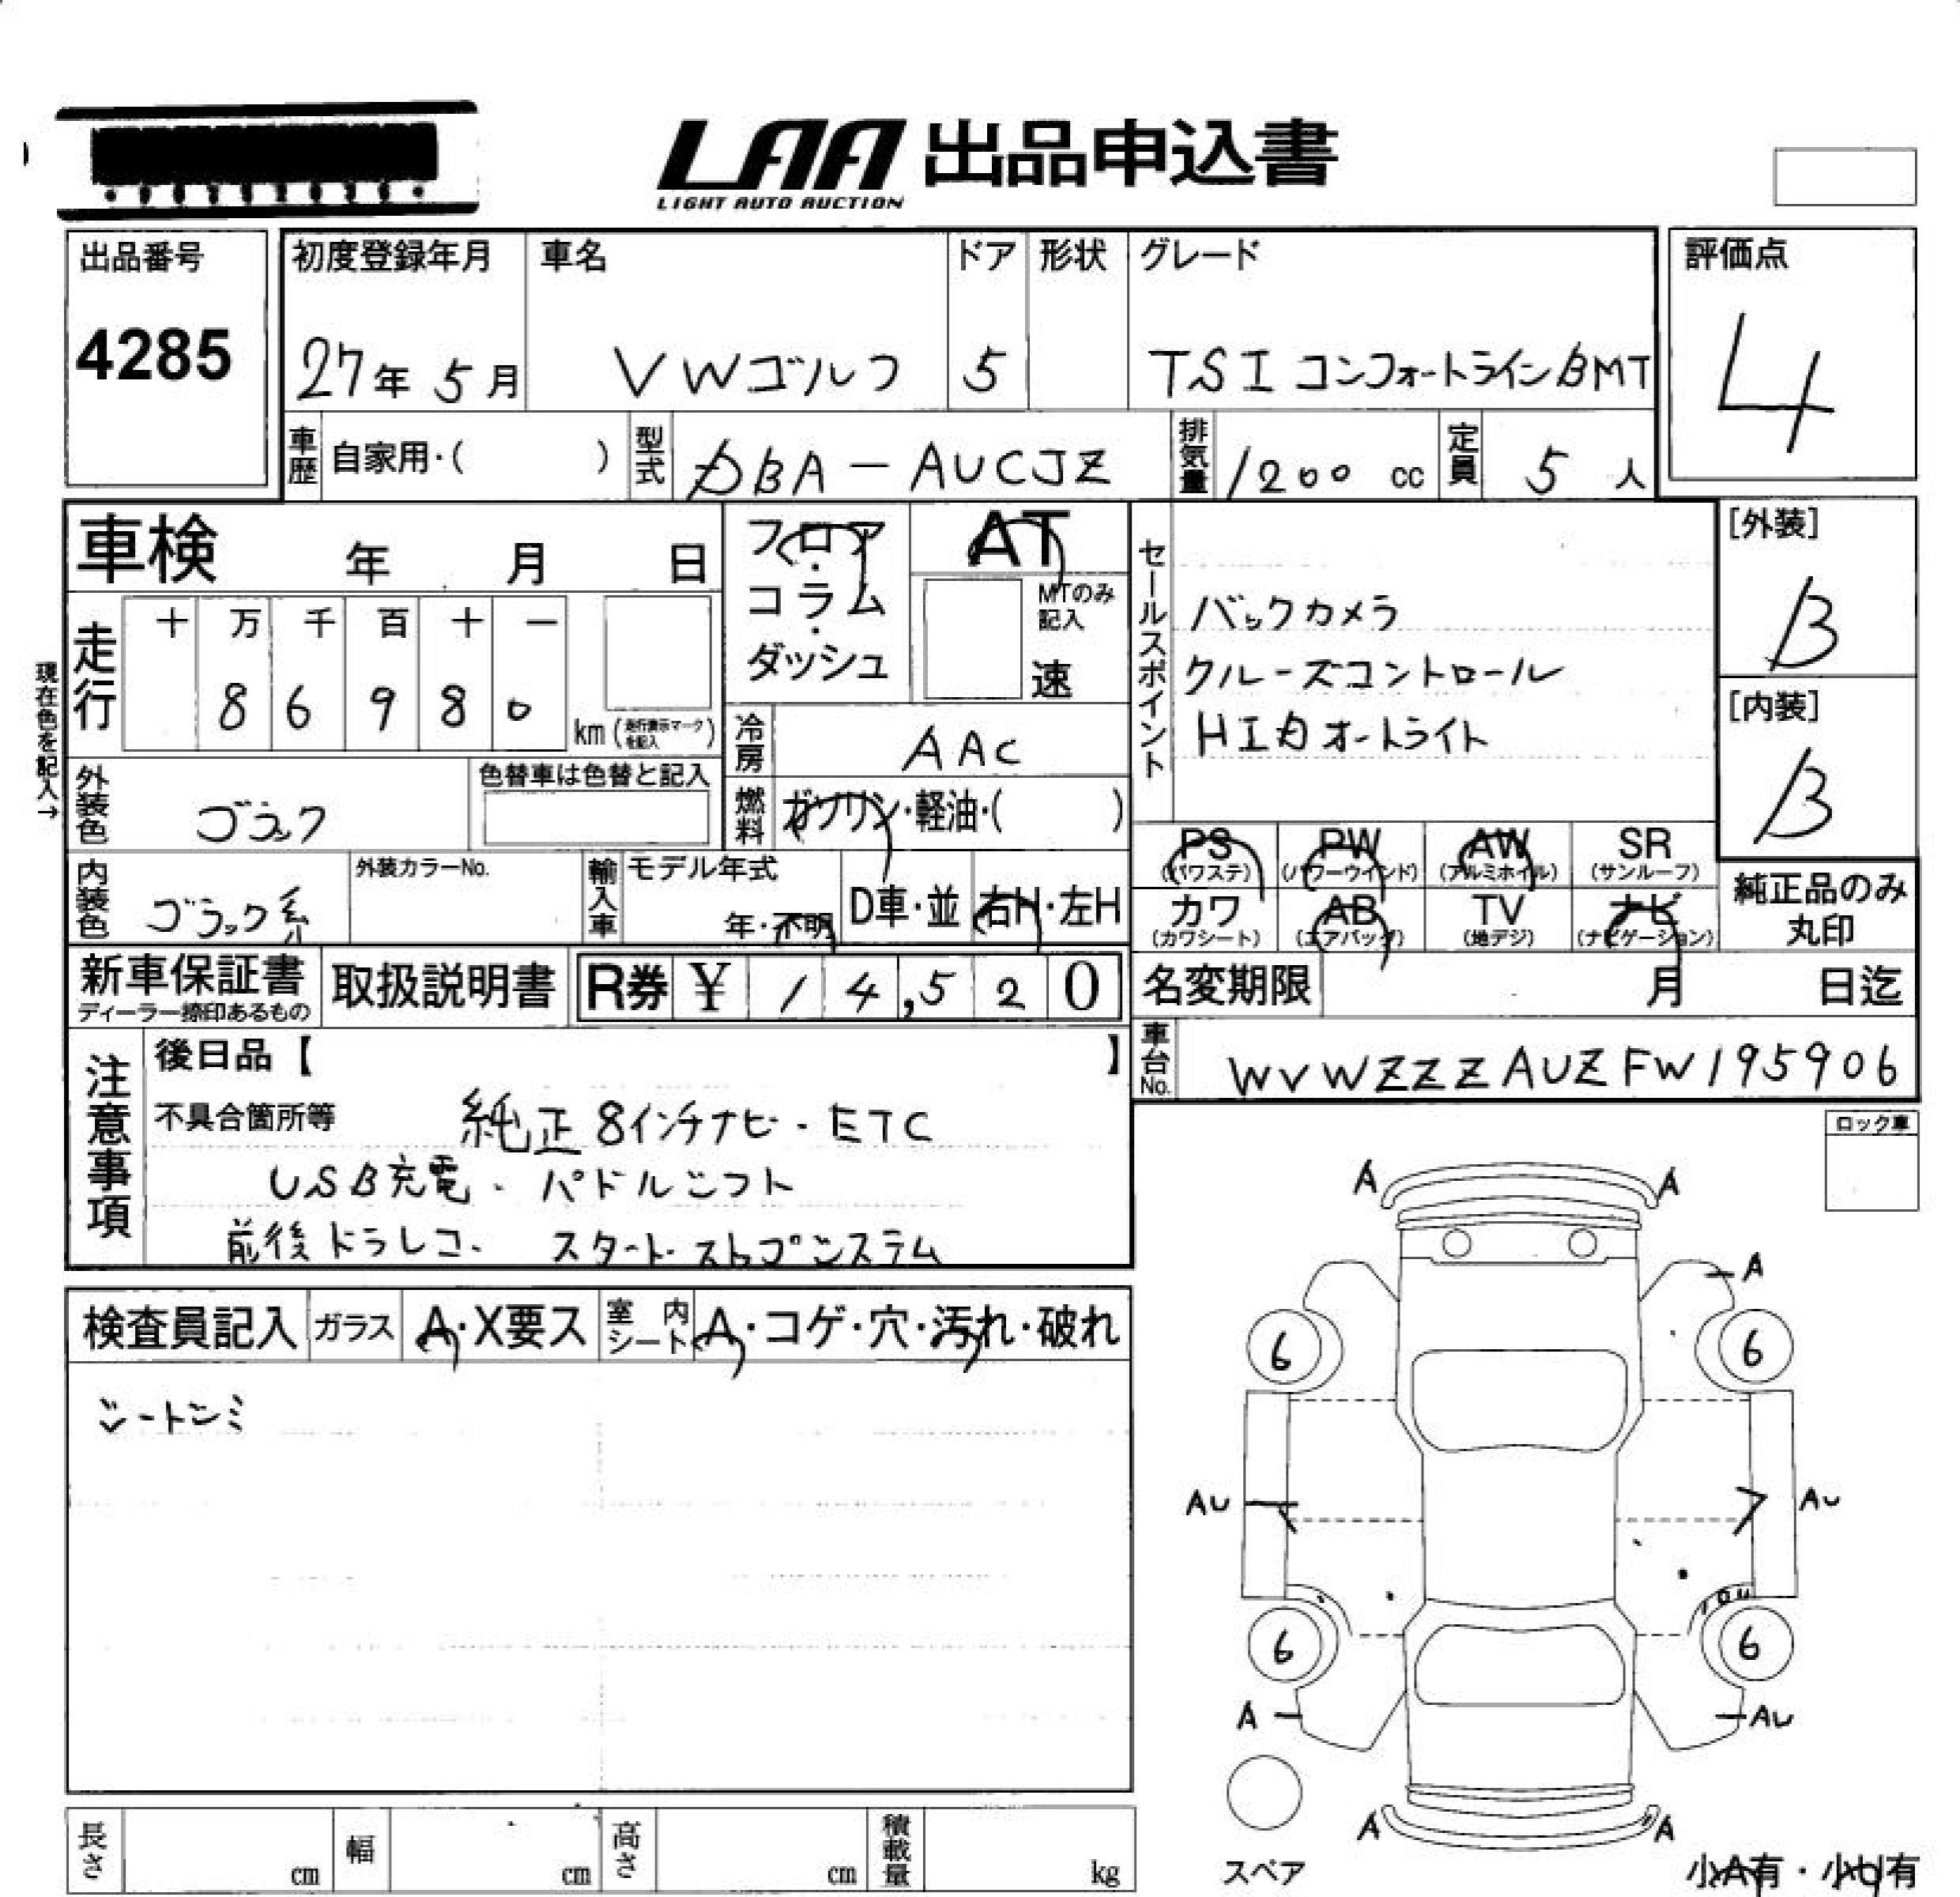 LAA 出品申込書
LIGHT AUTO AUCTION
出品番号
4285
初度登録年月
27年 5月
車名
VWゴルフ
ドア
5
形状
グレード
TSI コンフォートラインBMT
評価点
4
車歴
自家用・( )
型式
DBA-AUCJZ
排気量
1200 cc
定員
5 人
車検 年 月 日
フロア・コラム・ダッシュ
AT
MTのみ記入
速
セールスポイント
バックカメラ
クルーズコントロール
HIDオートライト
[外装]
B
[内装]
B
現在色を記入→
走行
十 万 千 百 十 一
8 6 9 8 0
km (走行表示マークを記入)
冷房
AAC
外装色
ブラック
色替車は色替と記入
燃料
ガソリン・軽油・( )
PS (パワステ)
PW (パワーウインド)
AW (アルミホイル)
SR (サンルーフ)
内装色
ブラック系
外装カラーNo.
輸入車
モデル年式
年・不明
D車・並
右H・左H
カワ (カワシート)
AB (エアバッグ)
TV (地デジ)
ナビ (ナビゲーション)
純正品のみ丸印
新車保証書
ディーラー捺印あるもの
取扱説明書
R券 ¥ 14,520
名変期限 月 日迄
車台No.
WVWZZZAUZFW195906
注意事項
後日品【 】
不具合箇所等
純正8インチナビ・ETC
USB充電・パドルシフト
前後ドラレコ・ スタートストップシステム
ロック車
検査員記入
ガラス
A・X要ス
室内シート
A・コゲ・穴・汚れ・破れ
シートシミ
A A
A
6 6
AU AU
6 6
A AU
A A
スペア
小A有・小U有
長さ cm
幅 cm
高さ cm
積載量 kg